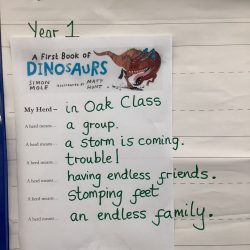 Year 1
A First Book of
DINOSAURS
SIMON MOLE
ILLUSTRATED BY MATT HUNT
My Herd – in Oak Class
A herd means... a group.
A herd means... a storm is coming.
A herd means... trouble!
A herd means... having endless friends.
A herd means... Stomping feet
A herd means... an endless family.